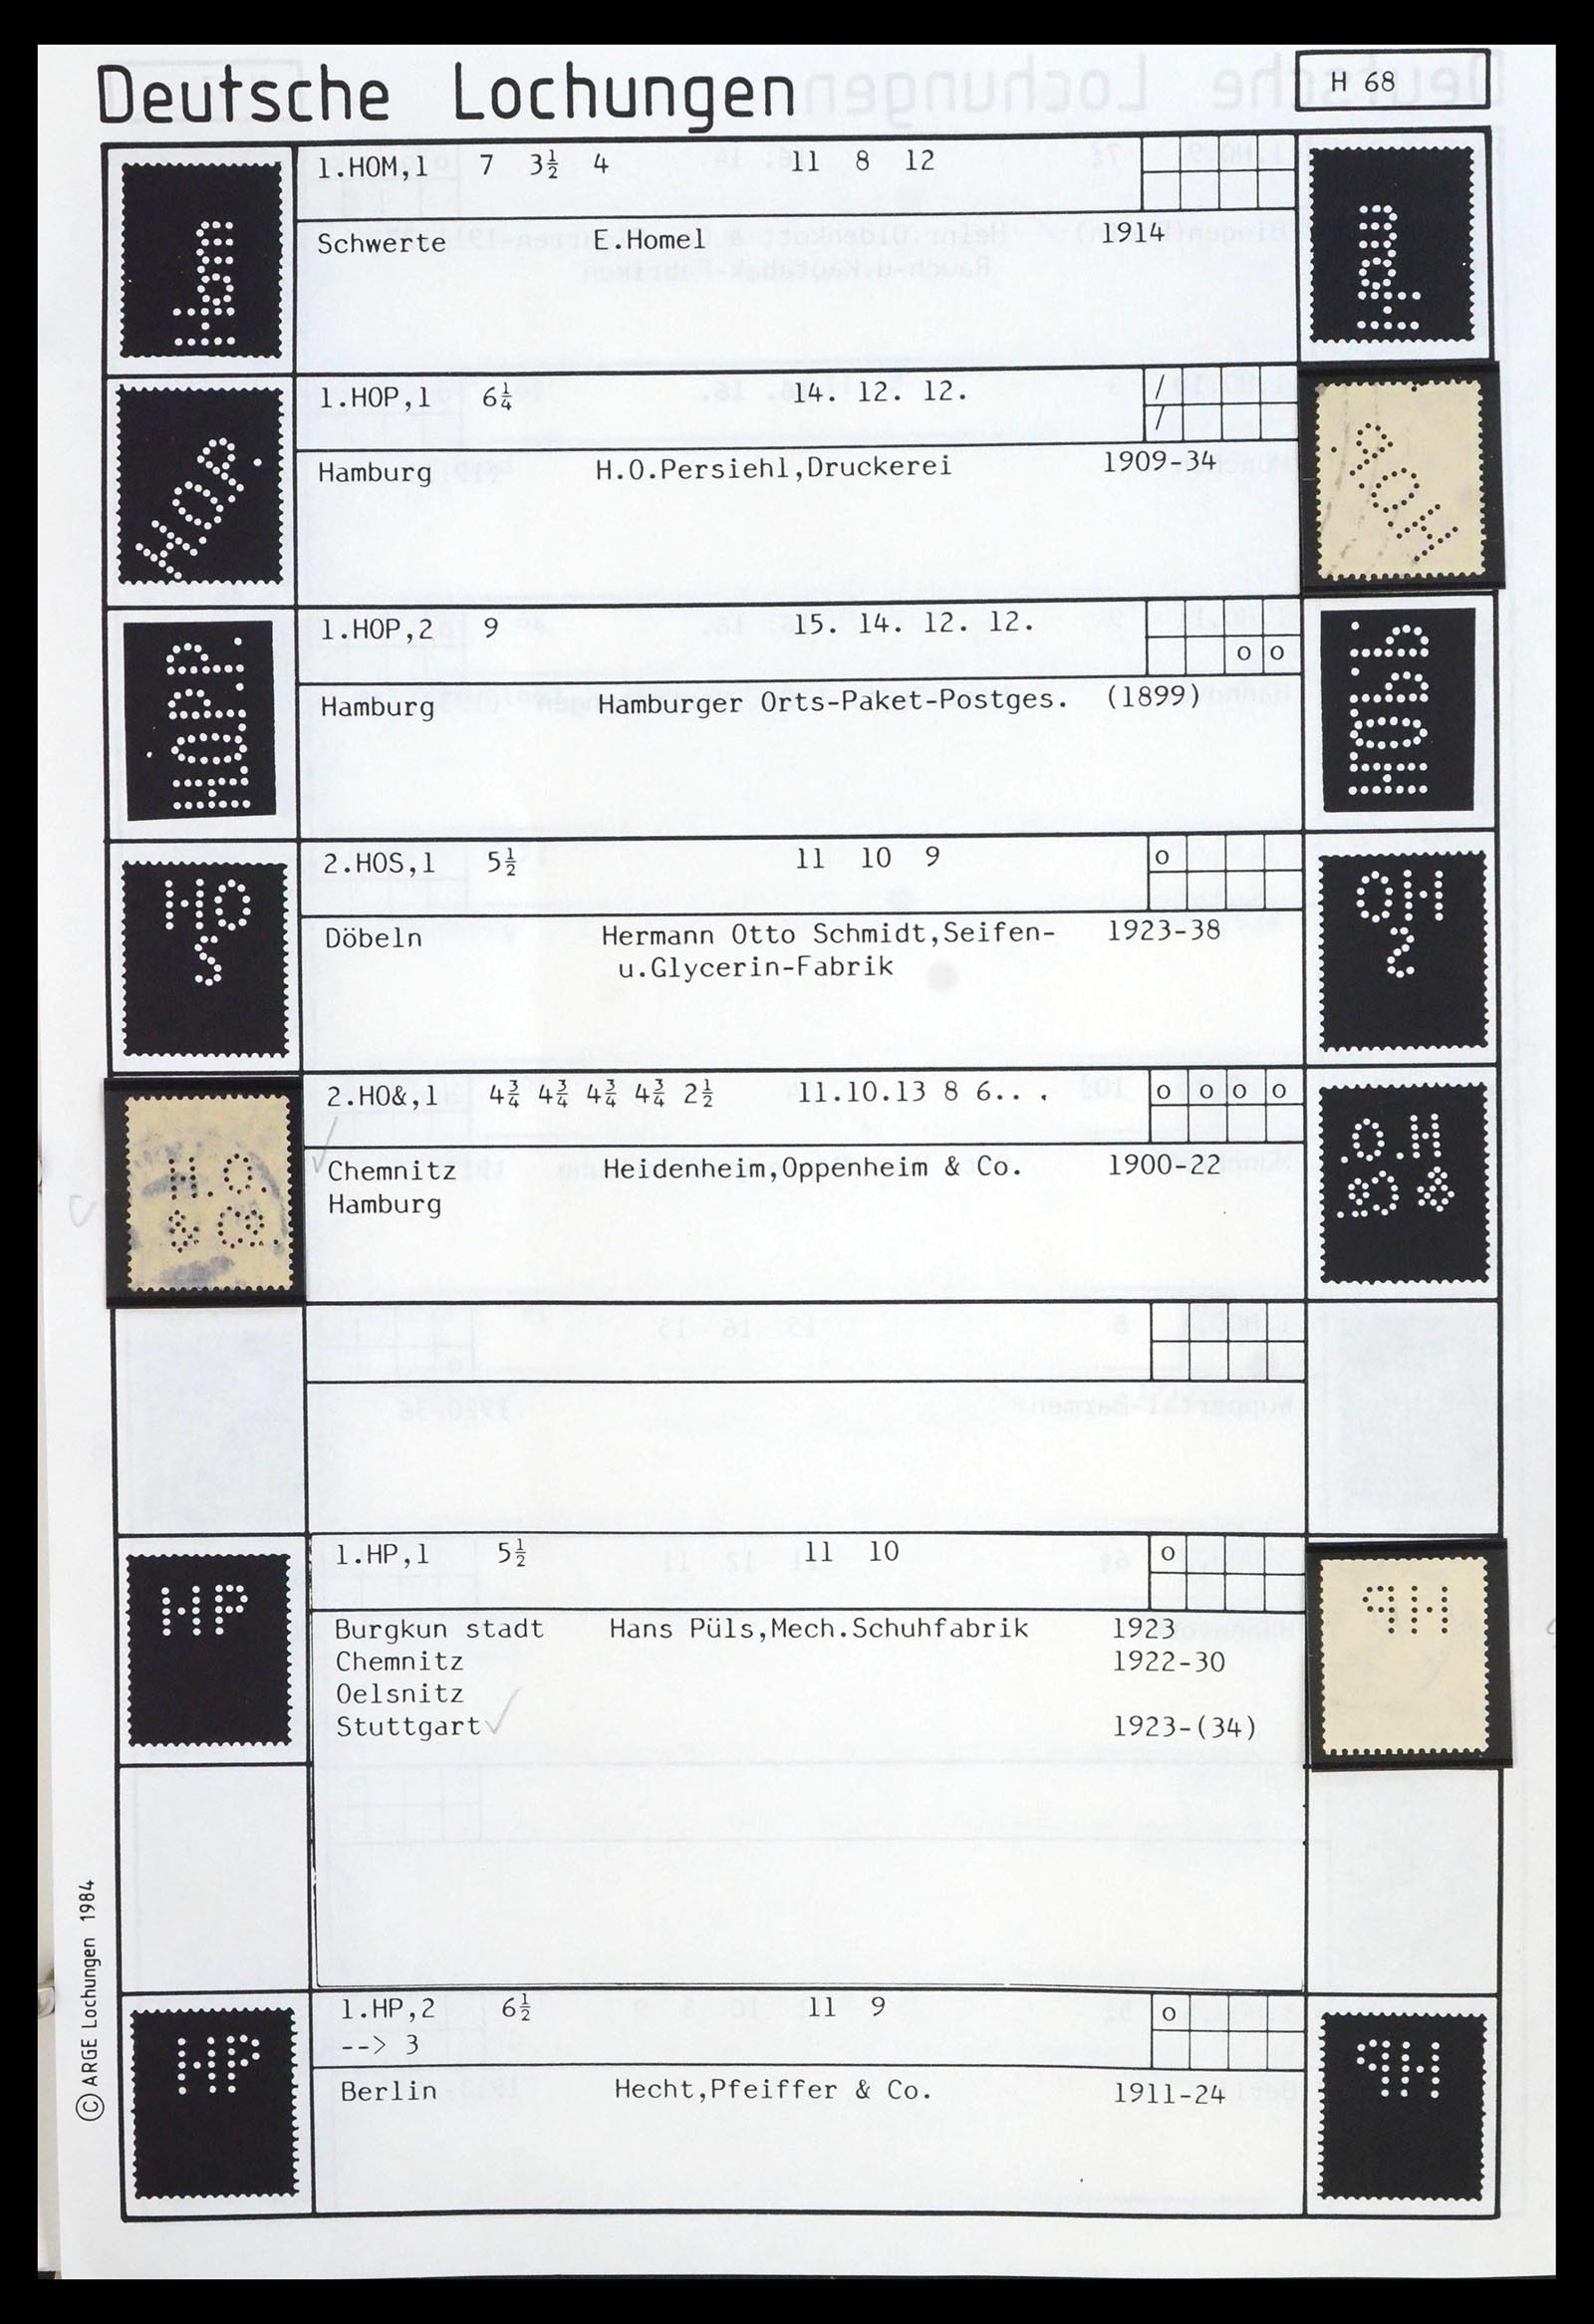 Deutsche Lochungen
H 68
1.HOM,1 7 3½ 4 11 8 12
Schwerte E.Homel 1914
Hom
1.HOP,1 6¼ 14. 12. 12.
/
/
Hamburg H.O.Persiehl,Druckerei 1909-34
H.O.P.
1.HOP,2 9 15. 14. 12. 12.
o o
Hamburg Hamburger Orts-Paket-Postges. (1899)
H.O.P.P.
2.HOS,1 5½ 11 10 9 o
Döbeln Hermann Otto Schmidt,Seifen- 1923-38
u.Glycerin-Fabrik
HO
S
2.HO&,1 4¾ 4¾ 4¾ 4¾ 2½ 11.10.13 8 6.. . o o o o
Chemnitz Heidenheim,Oppenheim & Co. 1900-22
Hamburg
H.O.
& Co.
1.HP,1 5½ 11 10 o
Burgkun stadt Hans Püls,Mech.Schuhfabrik 1923
Chemnitz 1922-30
Oelsnitz
Stuttgart ✓ 1923-(34)
HP
1.HP,2 6½ 11 9 o
--> 3
Berlin Hecht,Pfeiffer & Co. 1911-24
HP
© ARGE Lochungen 1984